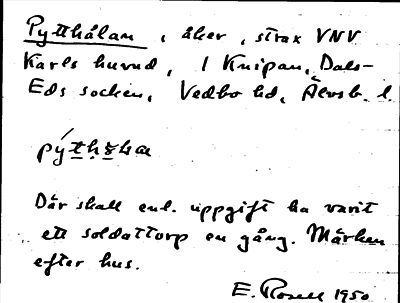 Pytthålan, åker, strax VNV
Karls huvud, i Knipan, Dals-
Eds socken, Vedbo hd, Älvsb. l.
Där skall enl. uppgift ha varit
ett soldattorp en gång. Märken
efter hus.
E. Rosell 1950